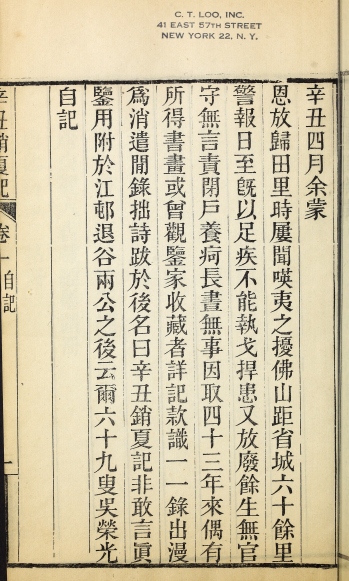 C. T. LOO, INC.
41 EAST 57TH STREET
NEW YORK 22, N. Y.
辛丑四月余蒙
恩放歸田里時屢聞𠸄夷之擾佛山距省城六十餘里
警報日至旣以足疾不能執戈捍患又放廢餘生無官
守無言責閉戶養疴長晝無事因取四十三年來偶有
所得書畫或曾觀鑒家收藏者詳記款識一一錄出漫
爲消遣閒錄拙詩跋於後名曰辛丑銷夏記非敢言眞
鑒用附於江邨退谷兩公之後云爾六十九叟吳榮光
自記
辛丑銷夏記
卷一
自記
一